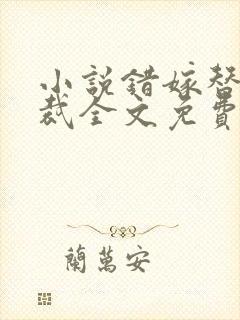 小說錯嫁替
裁全文免費
蘭萬安